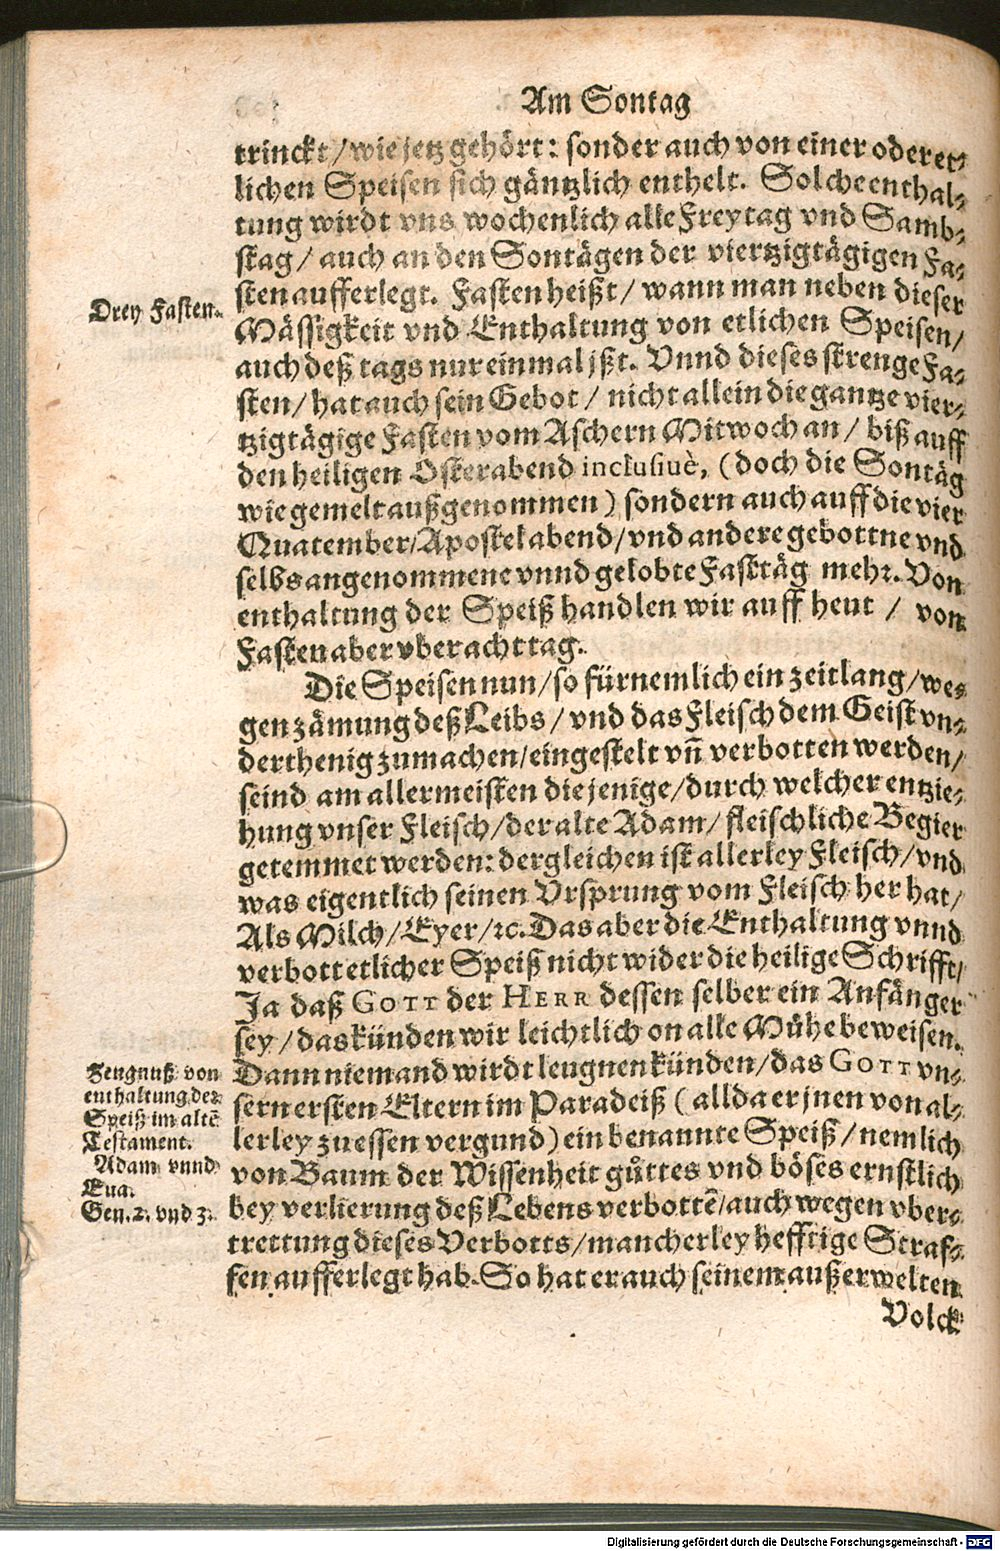 Am Sontag
trinckt/wie jetz gehört: sonder auch von einer oder et⸗
lichen Speisen sich gäntzlich enthelt. Solche enthal⸗
tung wirdt vns wochenlich alle Freytag vnd Samb⸗
stag/ auch an den Sontägen der viertzigtägigen Fa⸗
sten aufferlegt. Fasten heißt/ wann man neben dieser
Drey Fasten.
Mässigkeit vnd Enthaltung von etlichen Speisen/
auch deß tags nur einmal jßt. Vnnd dieses strenge Fa⸗
sten/ hat auch sein Gebot/ nicht allein die gantze vier⸗
tzigtägige Fasten vom Aschern Mitwoch an/ biß auff
den heiligen Osterabend inclusiuè, (doch die Sontäg
wie gemelt außgenommen) sondern auch auff die vier
Quatember/Apostelabend/vnd andere gebottne vnd
selbs angenommene vnnd gelobte Fasttäg mehr. Von
enthaltung der Speiß handlen wir auff heut / von
Fasten aber vber acht tag.
Die Speisen nun/so fürnemlich ein zeitlang/we⸗
gen zämung deß Leibs/ vnd das Fleisch dem Geist vn⸗
derthenig zumachen/eingestelt vñ verbotten werden/
seind am allermeisten diejenige/durch welcher entzie⸗
hung vnser Fleisch/der alte Adam/ fleischliche Begier
getemmet werden: dergleichen ist allerley Fleisch/vnd
was eigentlich seinen Vrsprung vom Fleisch her hat/
Als Milch/Eyer/ꝛc. Das aber die Enthaltung vnnd
verbott etlicher Speiß nicht wider die heilige Schrifft/
Ja daß GOTT der HERR dessen selber ein Anfänger
sey/das künden wir leichtlich on alle Mühe beweisen.
Dann niemand wirdt leugnen künden/das GOTT vn⸗
sern ersten Eltern im Paradeiß (allda er jnen von al⸗
lerley zuessen vergund) ein benannte Speiß/nemlich
von Baum der Wissenheit gůttes vnd böses ernstlich
bey verlierung deß Lebens verbottẽ/auch wegen vber⸗
trettung dieses Verbotts/mancherley hefftige Straf⸗
fen aufferlegt hab. So hat er auch seinem außerwelten
Zeugnuß von
enthaltung der
Speiß im altẽ
Testament.
Adam vnnd
Eua.
Gen. 2. vnd 3.
Volck
Digitalisierung gefördert durch die Deutsche Forschungsgemeinschaft - DFG